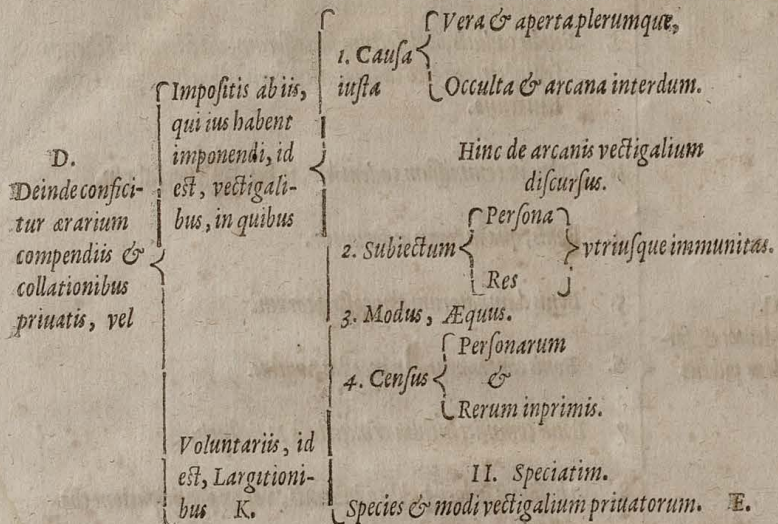 D.
Deinde confici-
tur ærarium
compendiis &
collationibus
priuatis, vel
Impositis ab iis,
qui ius habent
imponendi, id
est, vectigali-
bus, in quibus
1. Causa
iusta
Vera & aperta plerumque,
Occulta & arcana interdum.
Hinc de arcanis vectigalium
discursus.
2. Subiectum
Persona
Res
vtriusque immunitas.
3. Modus, Æquus.
4. Census
Personarum
&
Rerum inprimis.
II. Speciatim.
Species & modi vectigalium priuatorum. E.
Voluntariis, id
est, Largitioni-
bus K.